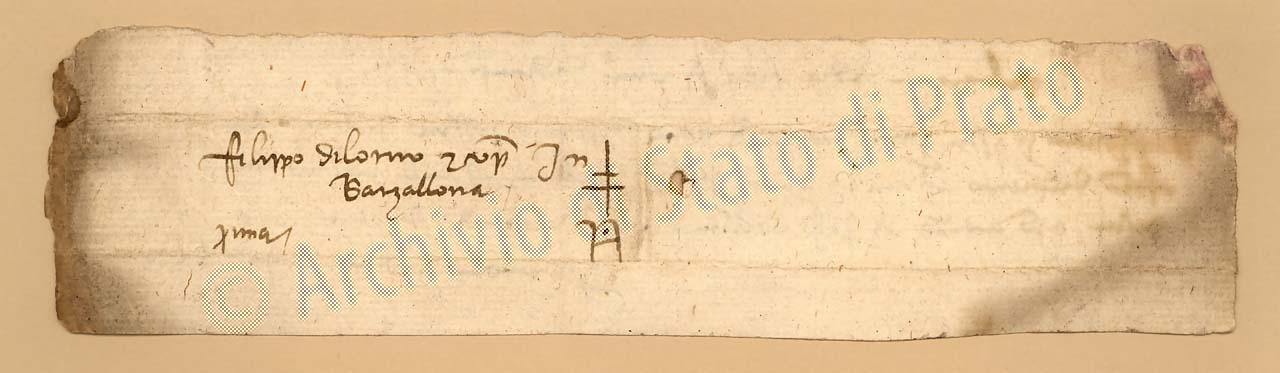 Filippo di lorino e conp In
Barzallona
prima
© Archivio di Stato di Prato